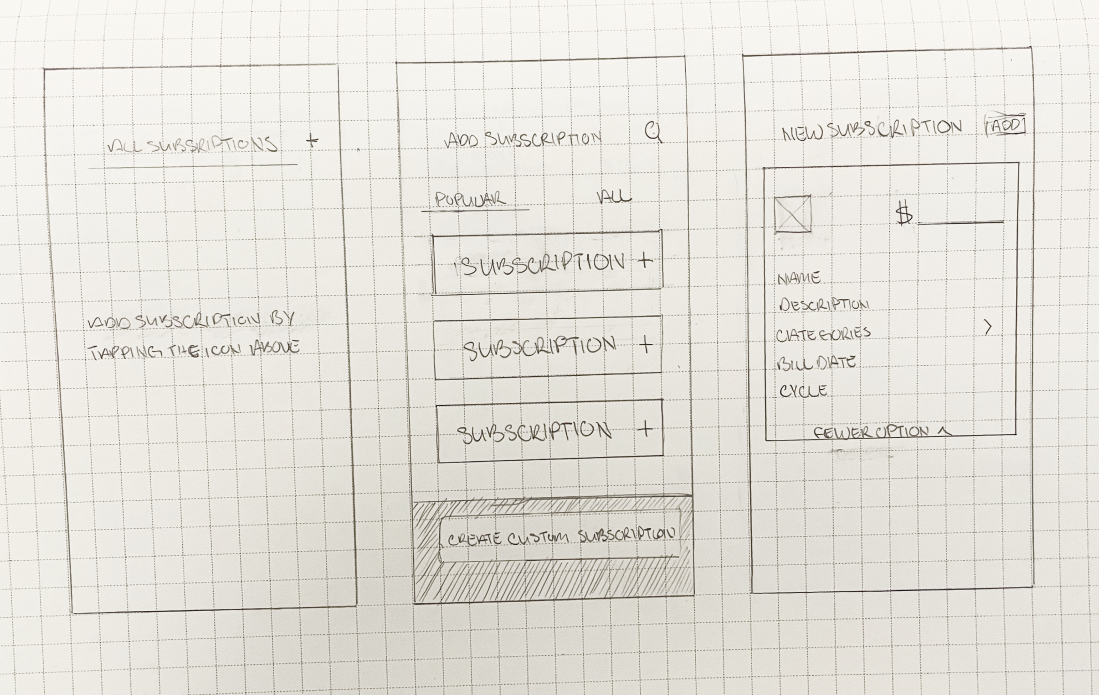 ALL SUBSRIPTIONS +
ADD SUBSCRIPTION BY
TAPPING THE ICON ABOVE
ADD SUBSCRIPTION
POPULAR ALL
SUBSCRIPTION +
SUBSCRIPTION +
SUBSCRIPTION +
CREATE CUSTOM SUBSCRIPTION
NEW SUBSCRIPTION ADD
$
NAME
DESCRIPTION
CATEGORIES >
BILL DATE
CYCLE
FEWER OPTION ^